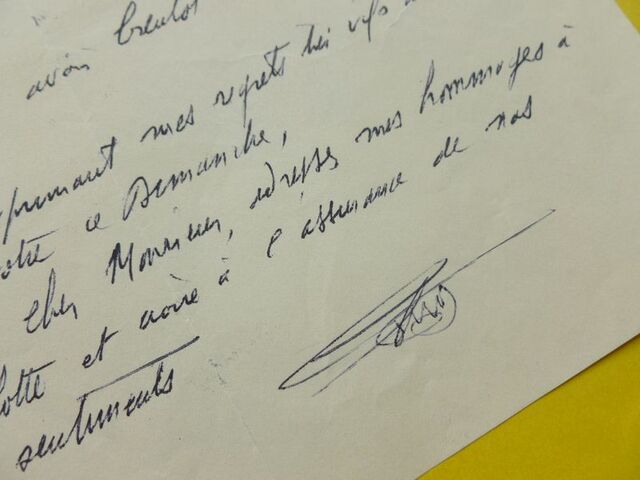 avoir bientôt
primant mes regrets très vifs
otre ce Dimanche,
Cher Monsieur, adresser mes hommages à
otte et croire à l'assurance de nos
sentiments